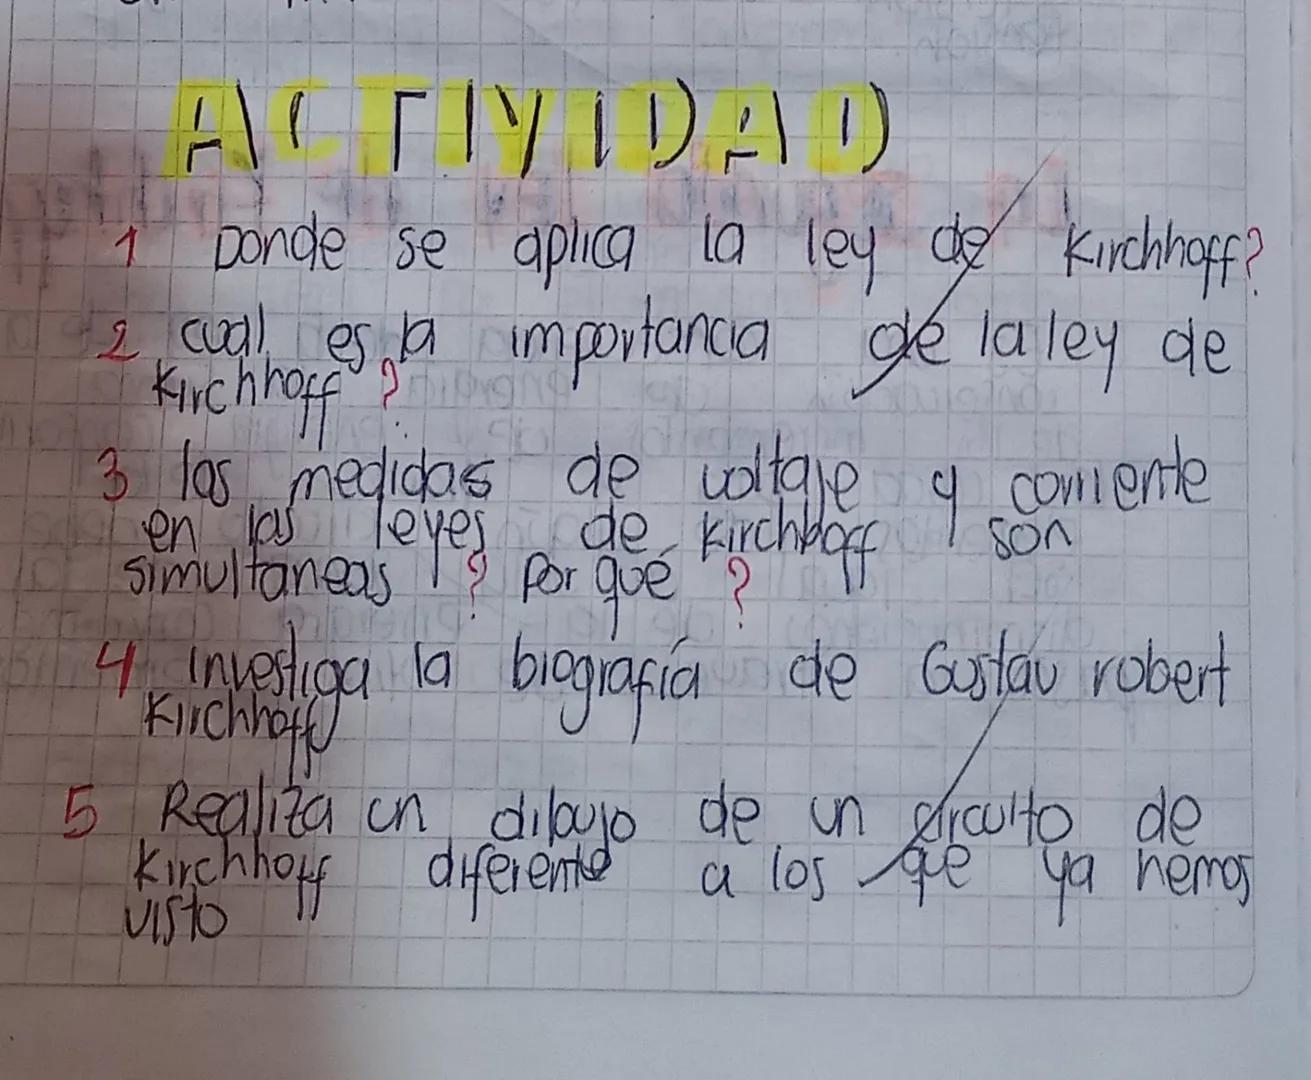 ACTIVIDAD
1 Donde se aplica la ley de Kirchhoff?
2 cual es la importancia de la ley de
Kirchhoff?
3 las medidas de voltaje y corriente
en las leyes de Kirchhoff son
simultaneas? Por qué?
4 investiga la biografía de Gustav robert
Kirchhoff
5 Realiza un dibujo de un circuito de
Kirchhoff diferente a los qe ya hemos
visto